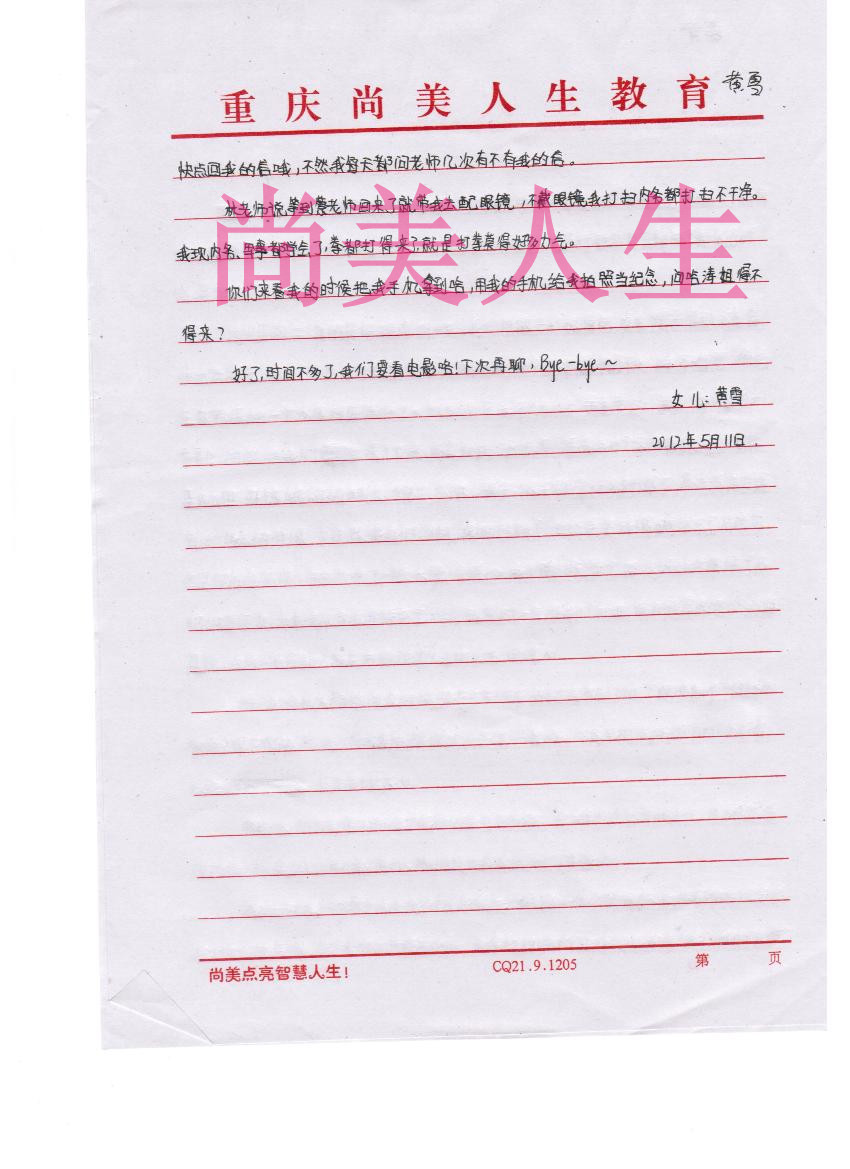 重庆尚美人生教育
黄雪
快点回我的信哦，不然我每天都问老师几次有不有我的信。
老师说等到龚老师回来了就带我去配眼镜，不戴眼镜我打扫内务都打扫不干净。
我现内务、军事都学会了，拳都打得来了就是打拳莫得好多力气。
你们来看我的时候把我手机拿到哈，用我的手机给我拍照当纪念，问哈涛姐得不
得来？
好了，时间不多了，我们要看电影咯！下次再聊，Bye-bye～
女儿：黄雪
2012年5月11日.
尚美人生
尚美点亮智慧人生！
CQ21.9.1205
第 页